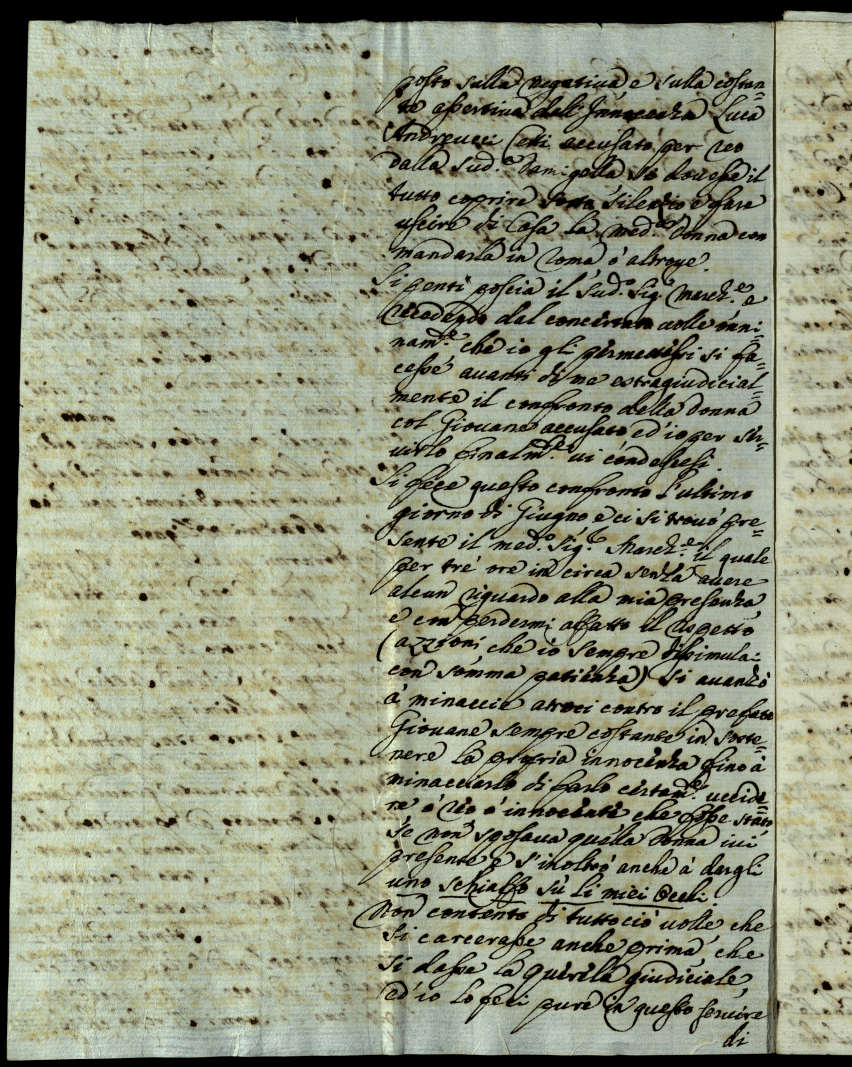 posto sulla negativa e sulla costan=
te asertiva dell'Innocenza Luca
Andreucci (etti accusato per reo
dalla Sud.ª Damigella si dovesse il
tutto coprire sotto silenzio e fare
uscire di Casa la med.ª Donna con
mandarla in Roma o altrove.
Si pentì poscia il Sud.º Sig.r March.e e
recedendo dal concertato volle onni=
nam.e che io gli permettessi si fa=
cesse avanti di me estragiudicial=
mente il confronto della Donna
col Giovane accusato ed'io per ser=
virlo finalm.e vi condescesi.
Si fece questo confronto l'ultimo
giorno di Giugno e ci si trovò pre=
sente il med.º Sig.r March.e il quale
per trè ore in circa senza avere
alcun riguardo alla mia presenza
e con perdermi affatto il rispetto
(azzioni che io sempre dissimulai
con somma patienza) si avanzò
à minaccie atroci contro il prefato
Giovane sempre costante in soste=
nere la propria innocenza fino à
minacciarlo di farlo certam.e uccide=
re ò reo ò innocente che fosse stato
se non sposava quella Donna ivi
presente e s'inoltrò anche à dargli
uno schiaffo sù li miei Occhi.
Non contento di tutto ciò volle che
si carcerasse anche prima che
si dasse la querela giudiciale,
ed'io lo feci pure in questo servire
di